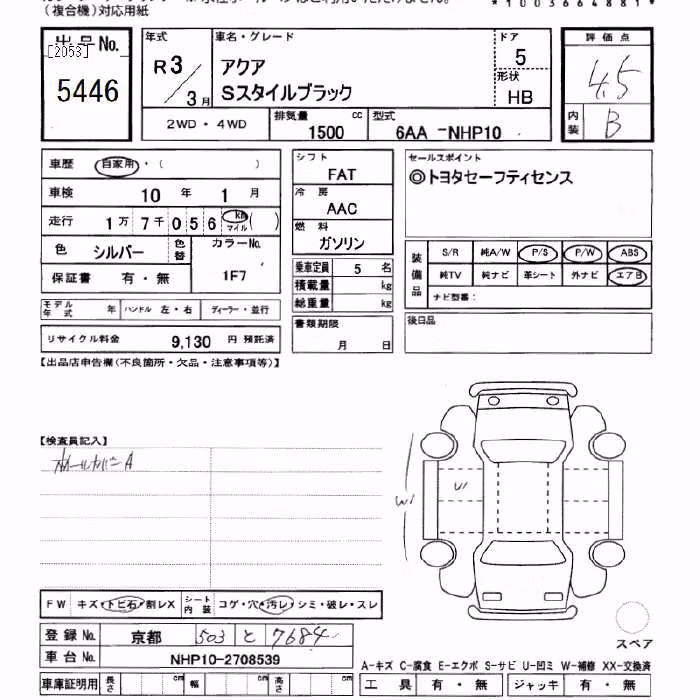 (複合機)対応用紙
*1003664881*
出品No.
[2053]
5446
年式
R3/3月
車名・グレード
アクア
Sスタイルブラック
ドア
5
形状
HB
評価点
4.5
内装
B
2WD・4WD
排気量
1500 cc
型式
6AA -NHP10
車歴 自家用・( )
車検 10年 1月
走行 1万7千056 km マイル( )
色 シルバー
色替
カラーNo.
1F7
保証書 有・無
モデル年式 年
ハンドル 左・右
ディーラー・並行
リサイクル料金 9,130 円 預託済
シフト
FAT
冷房
AAC
燃料
ガソリン
乗車定員 5 名
積載量 kg
総重量 kg
書類期限
月 日
セールスポイント
◎トヨタセーフティセンス
装備品
S/R 純A/W P/S P/W ABS
純TV 純ナビ 革シート 外ナビ エアB
ナビ型番:
後日品
【出品店申告欄(不良箇所・欠品・注意事項等)】
【検査員記入】
ホールカバーA
W
W
FW キズ・トビ石・割レX
シート内装 コゲ・穴・汚レ・シミ・破レ・スレ
登録No. 京都 503 と 7684
車台No. NHP10-2708539
車庫証明用 長さ cm 幅 cm 高さ cm
スペア
A-キズ C-腐食 E-エクボ S-サビ U-凹ミ W-補修 XX-交換済
工具 有・無 ジャッキ 有・無